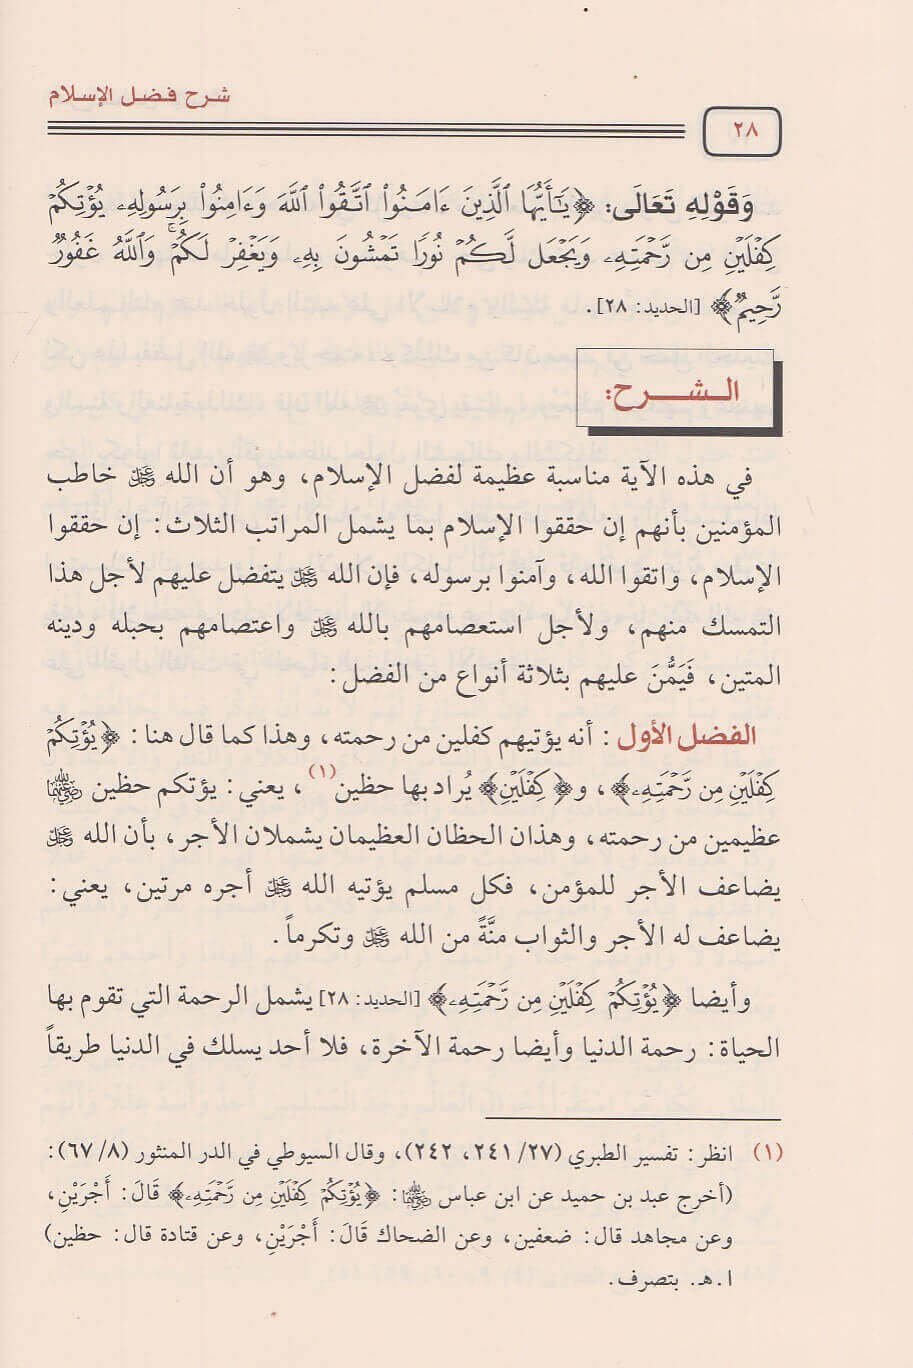 شرح فضل الإسلام
٢٨
وَقَوْلِهِ تَعَالَى: ﴿يَـٰٓأَيُّهَا ٱلَّذِينَ ءَامَنُواْ ٱتَّقُواْ ٱللَّهَ وَءَامِنُواْ بِرَسُولِهِۦ يُؤْتِكُمْ
كِفْلَيْنِ مِن رَّحْمَتِهِۦ وَيَجْعَل لَّكُمْ نُورًا تَمْشُونَ بِهِۦ وَيَغْفِرْ لَكُمْۚ وَٱللَّهُ غَفُورٌ
رَّحِيمٌ﴾ [الحديد: ٢٨].
الـشـــرح:
في هذه الآية مناسبة عظيمة لفضل الإسلام، وهو أن الله عز وجل خاطب
المؤمنين بأنهم إن حققوا الإسلام بما يشمل المراتب الثلاث: إن حققوا
الإسلام، واتقوا الله، وآمنوا برسوله، فإن الله عز وجل يتفضل عليهم لأجل هذا
التمسك منهم، ولأجل استعصامهم بالله عز وجل واعتصامهم بحبله ودينه
المتين، فَيَمُّنَ عليهم بثلاثة أنواع من الفضل:
الفضل الأول: أنه يؤتيهم كفلين من رحمته، وهذا كما قال هنا: ﴿يُؤْتِكُمْ
كِفْلَيْنِ مِن رَّحْمَتِهِۦ﴾، و﴿كِفْلَيْنِ﴾ يُراد بها حظين(١)، يعني: يؤتكم حظين
عظيمين من رحمته، وهذان الحظان العظيمان يشملان الأجر، بأن الله عز وجل
يضاعف الأجر للمؤمن، فكل مسلم يؤتيه الله عز وجل أجره مرتين، يعني:
يضاعف له الأجر والثواب منَّةً من الله عز وجل وتكرماً.
وأيضا ﴿يُؤْتِكُمْ كِفْلَيْنِ مِن رَّحْمَتِهِۦ﴾ [الحديد: ٢٨] يشمل الرحمة التي تقوم بها
الحياة: رحمة الدنيا وأيضا رحمة الآخرة، فلا أحد يسلك في الدنيا طريقاً
(١) انظر: تفسير الطبري (٢٧/ ٢٤١، ٢٤٢)، وقال السيوطي في الدر المنثور (٨/ ٦٧):
(أخرج عبد بن حميد عن ابن عباس رضي الله عنهما: ﴿يُؤْتِكُمْ كِفْلَيْنِ مِن رَّحْمَتِهِۦ﴾ قَالَ: أَجْرَيْنِ،
وعن مجاهد قال: ضعفين، وعن الضحاك قَالَ: أَجْرَيْنِ، وعن قتادة قال: حظين)
ا.هـ. بتصرف.